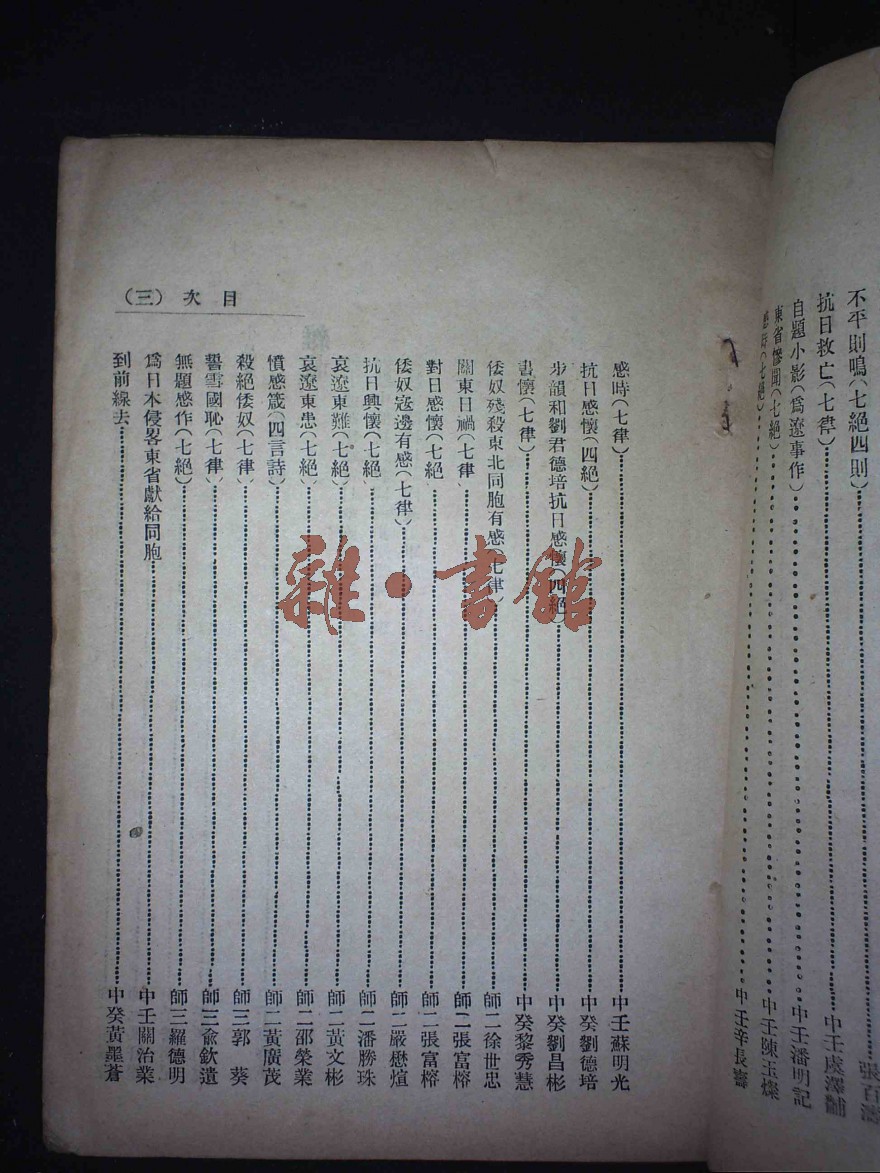 不平則鳴(七絕四則) 張百濤
抗日救亡(七律) 中壬虞澤黼
自題小影(爲遼事作) 中壬潘明記
東省慘聞(七絕) 中壬陳玉燦
感時(七絕) 中壬辛長壽
目次(三)
感時(七律) 中壬蘇明光
抗日感懷(四絕) 中癸劉德培
步韻和劉君德培抗日感懷(四絕) 中癸劉昌彬
書懷(七律) 中癸黎秀慧
倭奴殘殺東北同胞有感(七律) 師二徐世忠
關東日禍(七律) 師二張富榕
對日感懷(七絕) 師二張富榕
倭奴寇邊有感(七律) 師二嚴懋煊
抗日興懷(七絕) 師二潘勝珠
哀遼東難(七絕) 師二黃文彬
哀遼東患(七絕) 師二邵榮業
憤感箴(四言詩) 師二黃廣茂
殺絕倭奴(七律) 師三郭葵
誓雪國恥(七律) 師三俞欽遺
無題感作(七絕) 師三羅德明
爲日本侵畧東省獻給同胞 中壬關治業
到前線去 中癸黃墨蒼
雜·書館